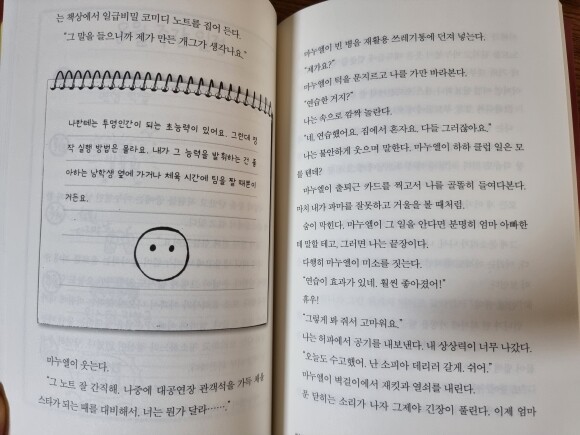 는 책상에서 일급비밀 코미디 노트를 집어 든다.
"그 말을 들으니까 제가 만든 개그가 생각나요."
나한테는 투명인간이 되는 초능력이 있어요. 그런데 정
작 실행 방법은 몰라요. 내가 그 능력을 발휘하는 건 좋
아하는 남학생 옆에 가거나 체육 시간에 팀을 짤 때뿐이
거든요.
마누엘이 웃는다.
"그 노트 잘 간직해. 나중에 대공연장 관객석을 가득 채울
스타가 되는 때를 대비해서. 너는 뭔가 달라……."
마누엘이 빈 병을 재활용 쓰레기통에 던져 넣는다.
"제가요?"
마누엘이 턱을 문지르고 나를 가만 바라본다.
"연습한 거지?"
나는 속으로 깜짝 놀란다.
"네, 연습했어요. 집에서 혼자요. 다들 그러잖아요."
나는 불안하게 웃으며 말한다. 마누엘이 하하 클럽 일은 모
를 텐데?
마누엘이 출퇴근 카드를 찍고서 나를 골똘히 들여다본다.
마치 내가 파마를 잘못하고 거울을 볼 때처럼.
숨이 막힌다. 마누엘이 그 일을 안다면 분명히 엄마 아빠한
테 말할 테고, 그러면 나는 끝장이다.
다행히 마누엘이 미소를 짓는다.
"연습이 효과가 있네. 훨씬 좋아졌어!"
휴우!
"그렇게 봐 줘서 고마워요."
나는 허파에서 공기를 내보낸다. 내 상상력이 너무 나갔다.
"오늘도 수고했어. 난 소피아 데리러 갈게. 쉬어."
마누엘이 벽걸이에서 재킷과 열쇠를 내린다.
문 닫히는 소리가 나자 그제야 긴장이 풀린다. 이제 엄마